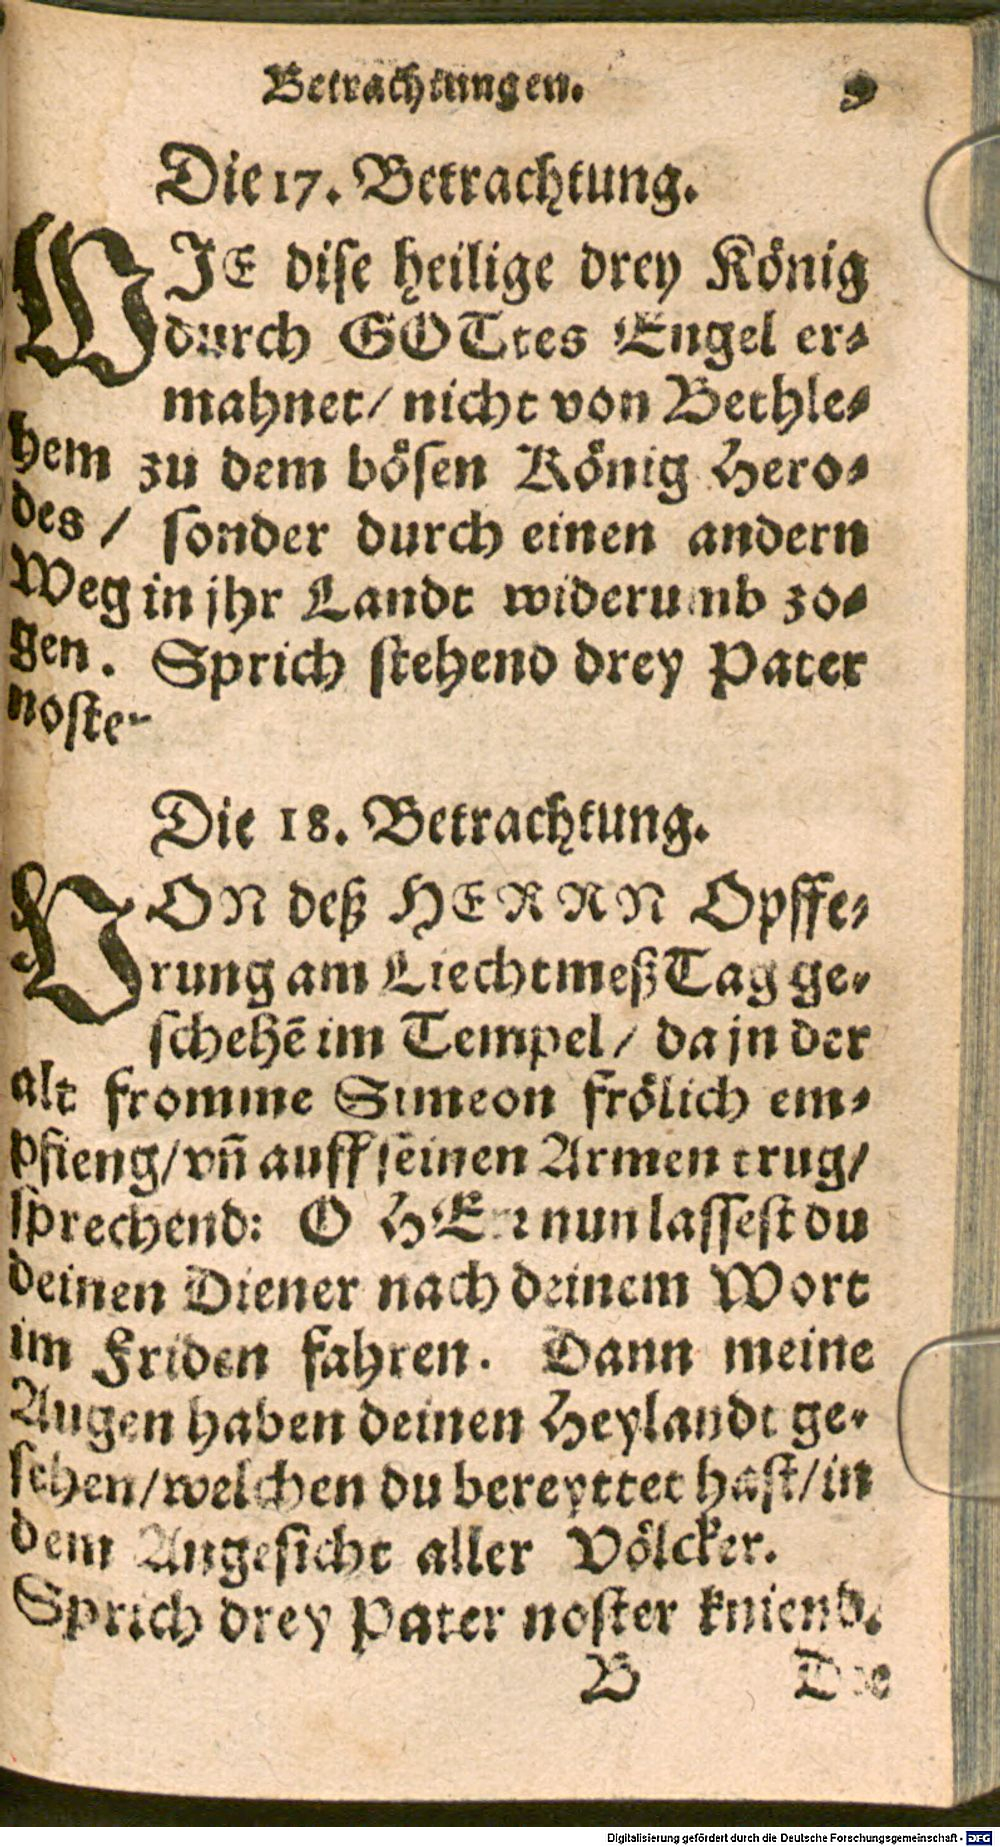 Betrachtungen. 9
Die 17. Betrachtung.
WJE dise heilige drey König
durch GOTtes Engel er⸗
mahnet/ nicht von Bethle⸗
hem zu dem bösen König Hero⸗
des / sonder durch einen andern
Weg in jhr Landt widerumb zo⸗
gen. Sprich stehend drey Pater
noster
Die 18. Betrachtung.
VON deß HERRN Opffe⸗
rung am Liechtmeß Tag ge⸗
schehē im Tempel/ da jn der
alt fromme Simeon frölich em⸗
pfieng/ vn̄ auff seinen Armen trug/
sprechend: O HErr nun lassest du
deinen Diener nach deinem Wort
im Friden fahren. Dann meine
Augen haben deinen Heylandt ge⸗
sehen/ welchen du bereyttet hast/ in
dem Angesicht aller Völcker.
Sprich drey Pater noster kniend.
B Die
Digitalisierung gefördert durch die Deutsche Forschungsgemeinschaft - DFG